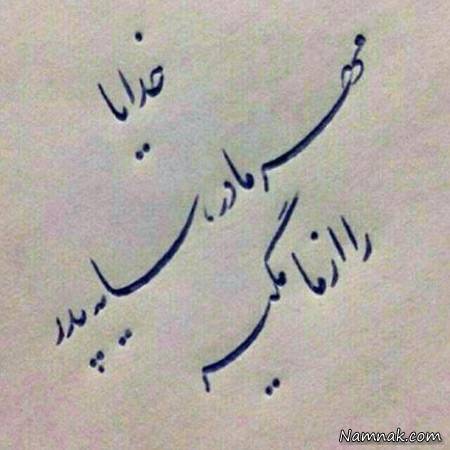 خدایا
مهر مادر، سایه پدر
را از ما مگیر
Namnak.com